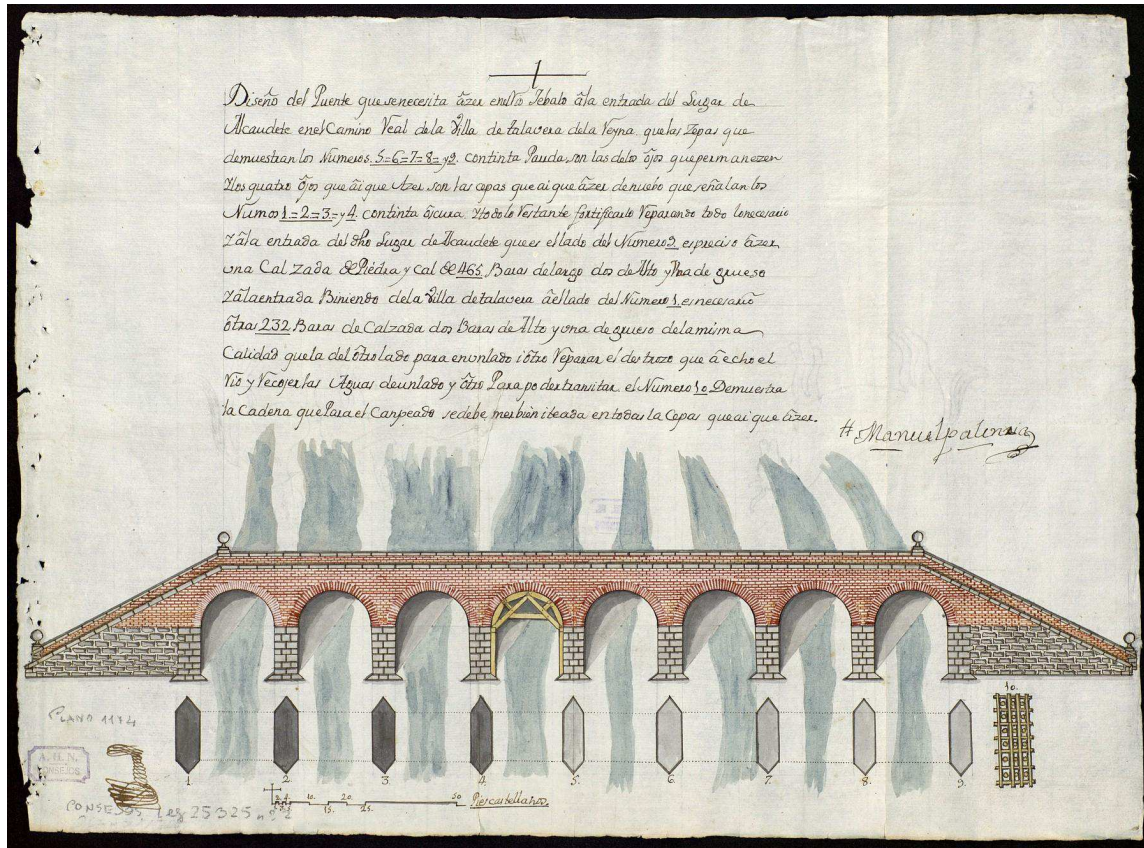 Diseño del Puente que se necesita āzer en el Rio Jebalo āla entrada del Lugar de
Alcaudete en el Camino Real de la Villa de talavera de la Reyna, que las Zepas que
demuestran los Numeros, 5=6=7=8= y 9. con tinta Parda, son las de los ōjos que permanezen
Y los quatro ōjos que āi que Azer son las cepas que ai que āzer de nuebo que señalan los
Numos 1=2=3= y 4. con tinta ōscura, Y todo lo Restante fortificarlo Reparando todo lo nezesario
Y āla entrada del dho Lugar de Alcaudete que es el lado del Numero 9, es preciso āzer
una Calzada de Piedra y Cal de 465, Baras de largo dos de Alto y Vna de grueso
Y āla entrada Biniendo de la Villa de talavera āel lado del Numero 1, es necesario
ōtras 232, Baras de Calzada dos Baras de Alto y vna de grueso de la misma
Calidad que la del ōtro lado para en vn lado i ōtro Reparar el destrozo que ā echo el
Rio y Recojer las Aguas de un lado y ōtro Para poder transitar, el Numero 10 Demuestra
la Cadena que Para el Canpeado se debe meter bien en todas la Cepas que ai que āzer.
Manuel palencia
10.
1. 2. 3. 4. 5. 6. 7. 8. 9.
PLANO 1174
A. H. N.
CONSEJOS
10. 20. 50 Pies castellanos.
15. 25.
CONSEJOS, Leg 25325 nº 2